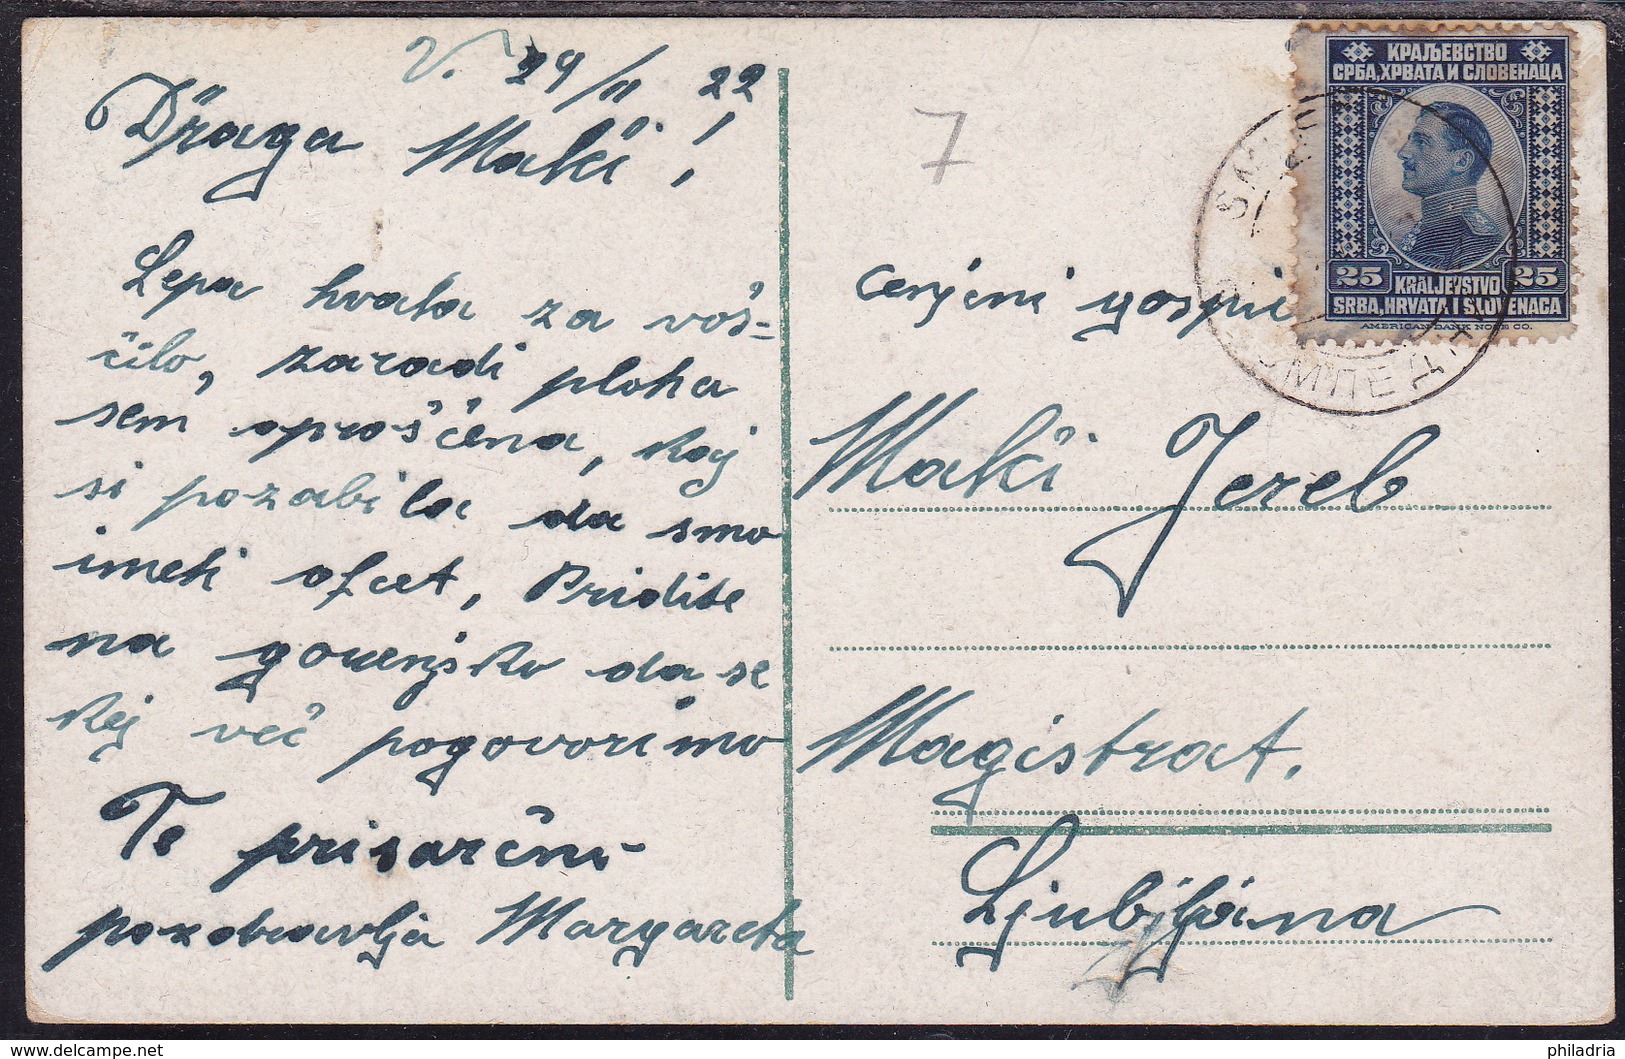 V. 29/11 22
Draga Maki!
Lepa hvala za voš=
čilo, zaradi ploha
sem oproščena, kaj
si pozabila da smo
imeli ofcet, Pridite
na gorenjsko da se
kej več pogovorimo
Te prisarčni
pozdravlja Margareta
7
КРАЉЕВСТВО
СРБА, ХРВАТА И СЛОВЕНАЦА
25 KRALJEVSTVO 25
SRBA, HRVATA I SLOVENACA
AMERICAN BANK NOTE CO.
cenjeni gospi
Maki Jereb
Magistrat.
Ljubljana
philadria